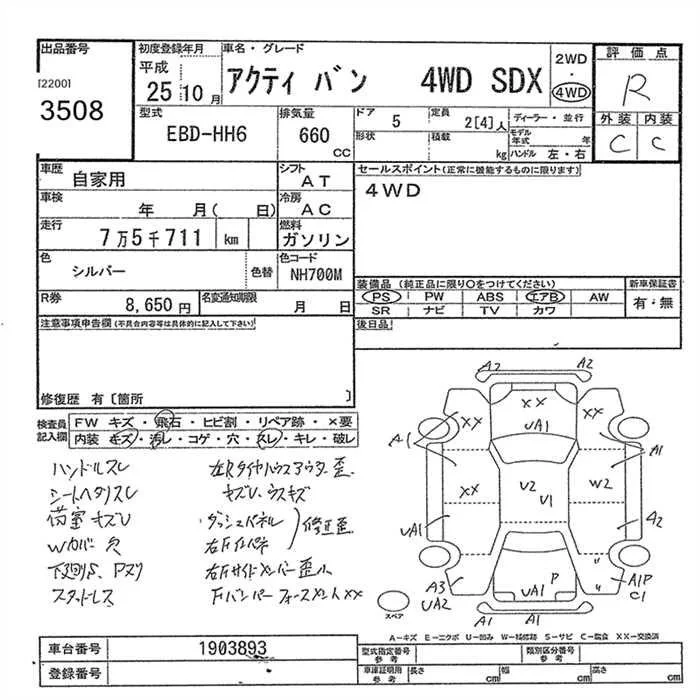 出品番号
[2200]
3508
初度登録年月
平成
25 10 月
車名・グレード
アクティ バン 4WD SDX
2WD
・
4WD
評価点
R
外装 内装
C C
型式
EBD-HH6
排気量
660
CC
ドア
5
形状
定員
2[4]人
積載
kg
ディーラー・並行
モデル年式 年
ハンドル 左・右
車歴
自家用
シフト
AT
セールスポイント(正常に機能するものに限ります)
4WD
車検
年 月( 日)
冷房
AC
走行
7万5千711 km
燃料
ガソリン
色
シルバー
色替
色コード
NH700M
装備品 (純正品に限り○をつけてください)
PS PW ABS エアB AW
SR ナビ TV カワ
新車保証書
有・無
R券
8,650円
名変通知期限
月 日
後日品
注意事項申告欄(不具合内容等は具体的に記入して下さい)
修復歴 有〔箇所 〕
検査員記入欄
FW キズ・飛石・ヒビ割・リペア跡・×要
内装 キズ・汚レ・コゲ・穴・スレ・キレ・破レ
ハンドルスレ
シートヘタリスレ
荷室キズU
Wカバー欠
下廻りS、Pヌリ
スタッドレス
左Rタイヤハウスアウター歪
キズU、ウスキズ
ダッシュパネル
右Fインパネ
修正歪
右Fサイドメンバー歪小
Fバンパーフォースメント××
A2 A2
XX
XX
XX
UA1
A1
A1
XX
U2
U1
W2
UA1
A2
A3
UA2
P
UA1
A1P
C1
A1 A1
スペア
A―キズ E―エクボ U―凹み W―補修跡 S―サビ C―腐食 XX―交換済
車台番号
1903893
登録番号
型式指定番号
参考
類別区分番号
参考
車庫証明用
参考
長さ cm
幅 cm
高さ cm